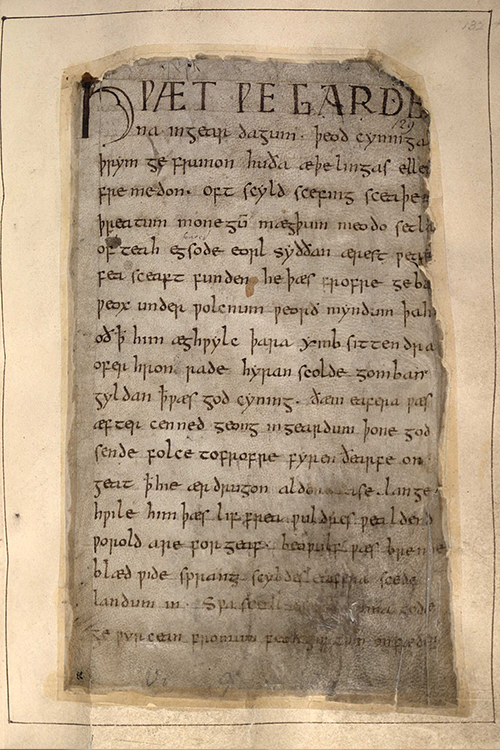 HǷÆT ǷE GARDE
na ingear dagum. þeod cyninga
þrym ge frunon huða æþelingas elle
fremedon. oft scyld scefing sceaþe
þreatum monegū mægþum meodo setla
of teah egsode eorl syððan ærest ƿear
fea sceaft funden he þæs frofre geba
ƿeox under ƿolcnum ƿeorð myndum þah
oð ꝥ him æghƿylc þara ymb sittendra
ofer hron rade hyran scolde gomban
gyldan þ ƿæs god cyning. ðæm eafera ƿæs
æfter cenned geong ingeardum þone god
sende folce tofrofre fyren ðearfe on
geat ꝥ hie ær drugon aldor ase. lange
hƿile him þæs lif frea ƿuldres ƿealdend
ƿorold are for geaf. beoƿulf ƿæs breme
blæd ƿide sprang scyldes eafera scede
landum in. Sƿa sceal guma gode
ge ƿyrcean fromum feoh giftum on fæder